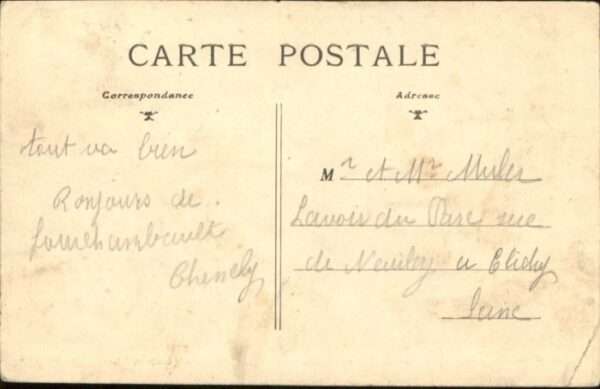 CARTE POSTALE
Correspondance
Adresse
tout va bien
Bonjours de
Fourchambault
Mr et Mr
Lavoir du Parc rue
de Neuilly a Clichy
Seine